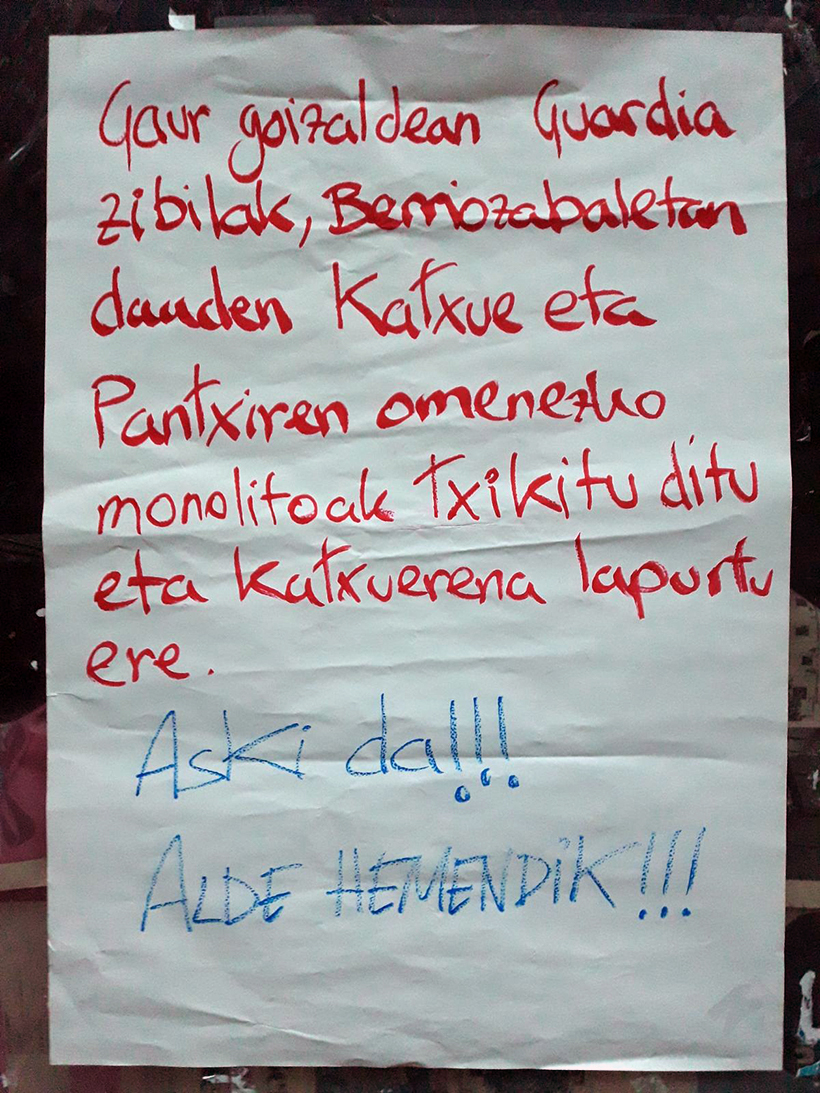 Gaur goizaldean Guardia
zibilak, Berriozabaletan
dauden Katxue eta
Pantxiren omenezko
monolitoak txikitu ditu
eta Katxuerena lapurtu
ere.
Aski da!!!
ALDE HEMENDIK!!!